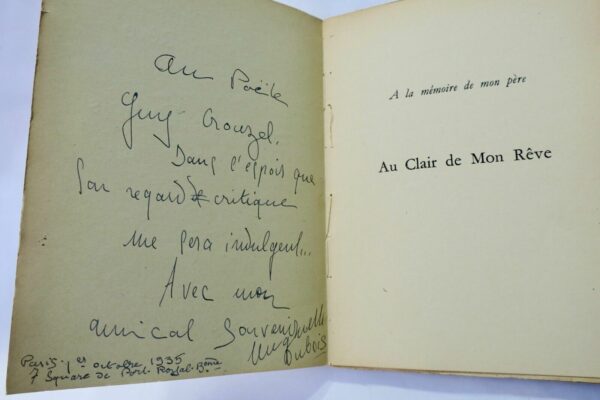 Au Poëte
Guy Crouzel,
Dans l'espoir que
son regard critique
me sera indulgent...
Avec mon
amical souvenir
Dubois
Paris. 1er octobre 1935
7 Square de Port-Royal.
A la mémoire de mon père
Au Clair de Mon Rêve